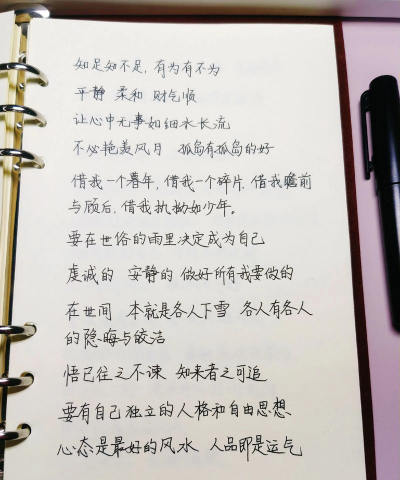 知足知不足，有为有不为
平静 柔和 财气顺
让心中无事如细水长流
不必艳羡风月 孤岛有孤岛的好
借我一个暮年，借我一个碎片，借我瞻前
与顾后，借我执拗如少年。
要在世俗的雨里决定成为自己
虔诚的 安静的 做好所有我要做的
在世间 本就是各人下雪 各人有各人
的隐晦与皎洁
悟已往之不谏 知来者之可追
要有自己独立的人格和自由思想
心态是最好的风水 人品即是运气